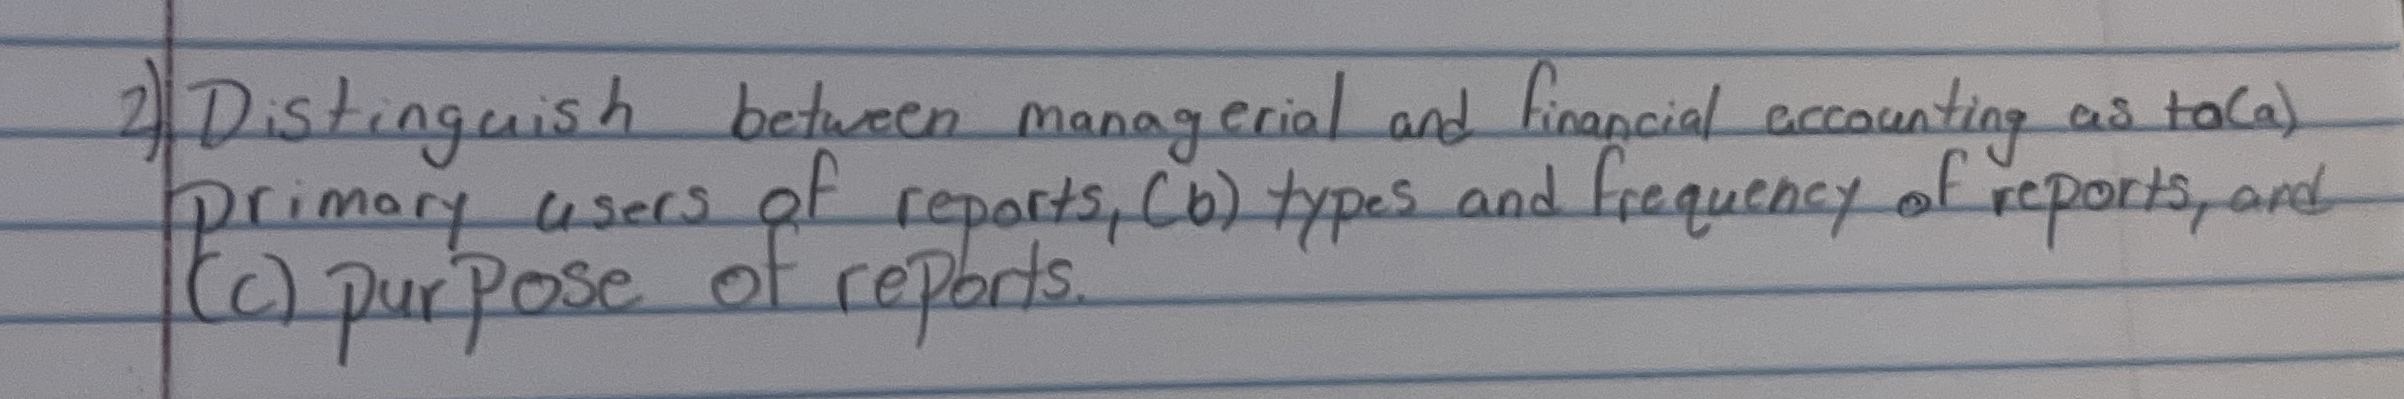 2) Distinguish between managerial and financial accounting as to (a)
primary users of reports, (b) types and frequency of reports, and
(c) purpose of reports.